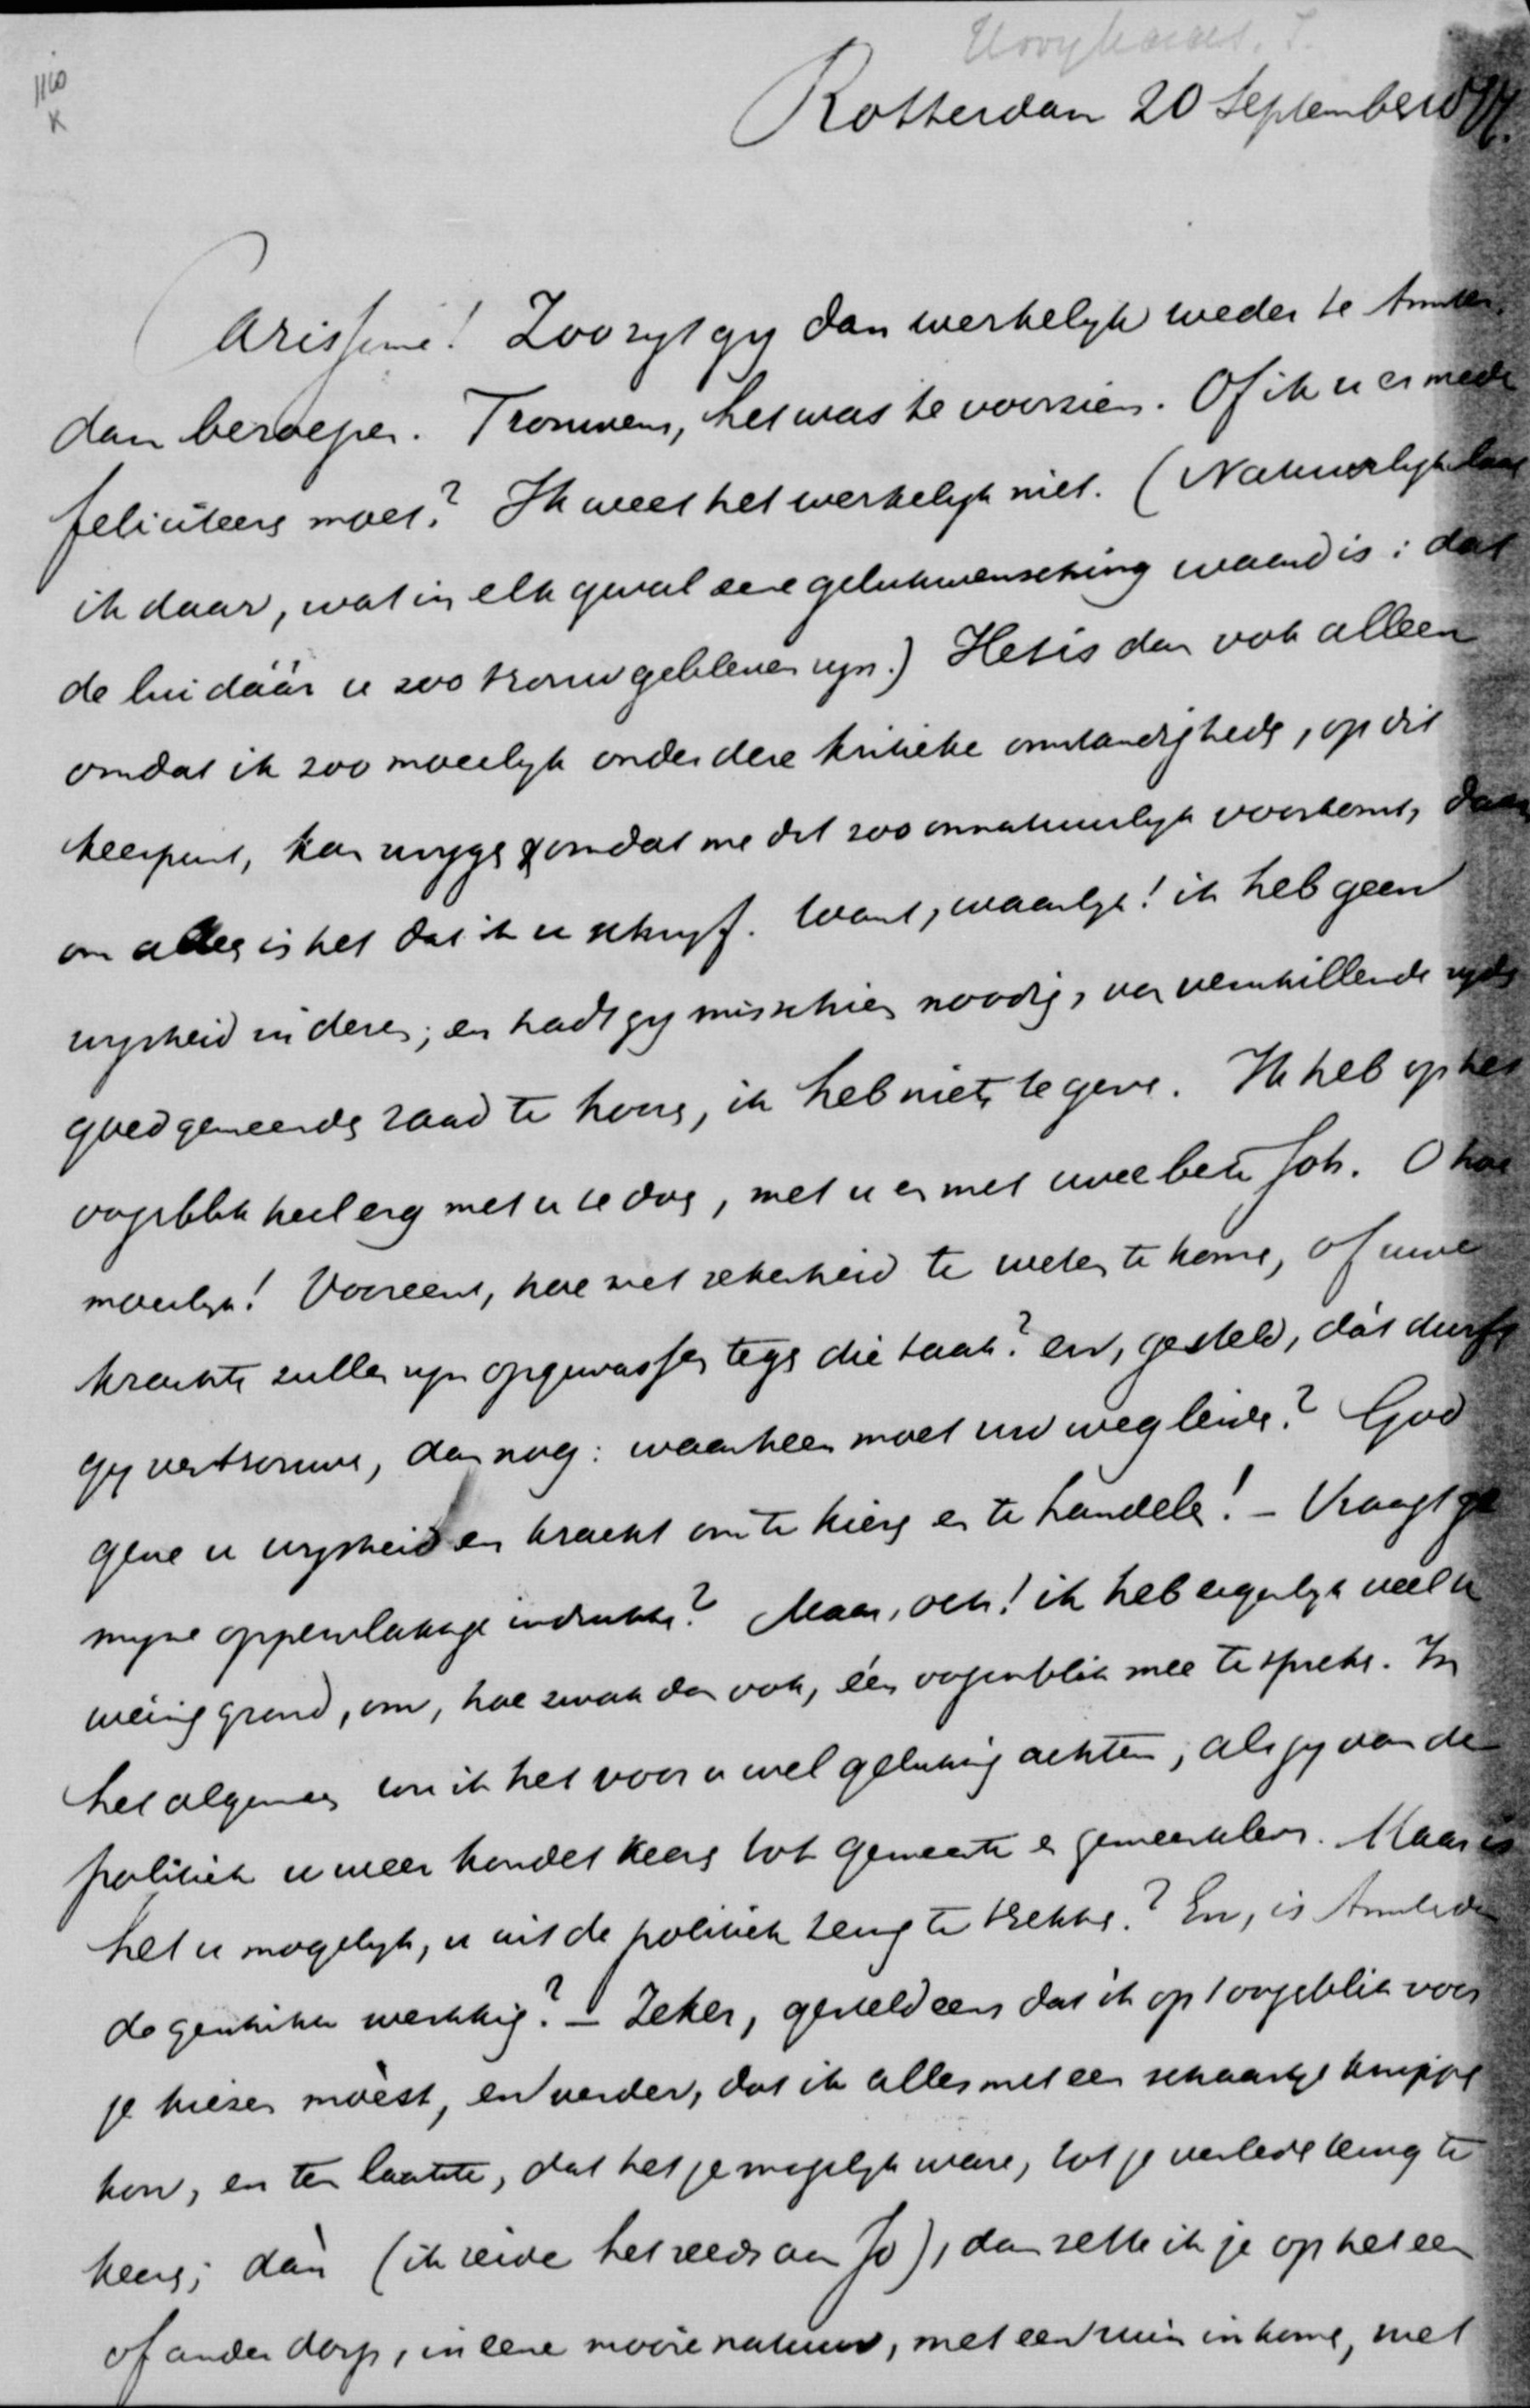 1160
K
Rotterdam 20 September
Carissime! Zoo zyt gy dan werkelyk weder te Amster-
dam beroepen. Trouwens, het was te voorzien. Of ik u er mede
feliciteeren moet? Ik weet het werkelyk niet. (Natuurlyk laat
ik daar, wat in elk geval eene gelukwensching waard is: dat
de lui dáár u zoo trouw gebleven zyn.) Het is dan ook alleen
omdat ik zoo moeilyk onder deze kritieke omstandigheden, op dit
keerpunt, kan zwygen omdat me dit zoo onnatuurlyk voorkomt, daar-
om alleen is het dat ik u schryf. Want, waarlyk! ik heb geen
wysheid in dezen; en hadt gy misschien noodig, van verschillende zyden
goedgemeenden raad te hooren, ik heb niets te geven. Ik heb op het
oogenblik heel erg met u te doen, met u en met uwe beste Joh. O hoe
moeilyk! Vooreerst, hoe met zekerheid te weten te komen, of uwe
krachten zullen zyn opgewassen tegen die taak? en, gesteld, dát durft
gy vertrouwen, dan nog: waarheen moet uw weg leiden? God
geve u wysheid en kracht om te kiezen en te handelen! – Vraagt ge
myne oppervlakkige indrukken? Maar, och! ik heb eigenlyk veel te
weinig grond, om, hoe zwak dan ook, één oogenblik mee te spreken. In
het algemeen zou ik het voor u wel gelukkig achten, als gy van de
politiek u meer kondet keeren tot gemeente en gemeenteleven. Maar is
het u mogelyk, u uit de politiek terug te trekken? En, is Amsterdam
de geschikte werkkring? – Zeker, gesteld eens dat ik op 't oogenblik voor
je kiezen moèst, en verder, dat ik alles met een schaartje knippen
kon, en ten laatste, dat het je mogelyk ware, tot je verleden terug te
keeren; dàn (ik zeide het reeds aan Jo), dan zette ik je op het een
of ander dorp, in eene mooie natuur, met een ruim inkomen, met